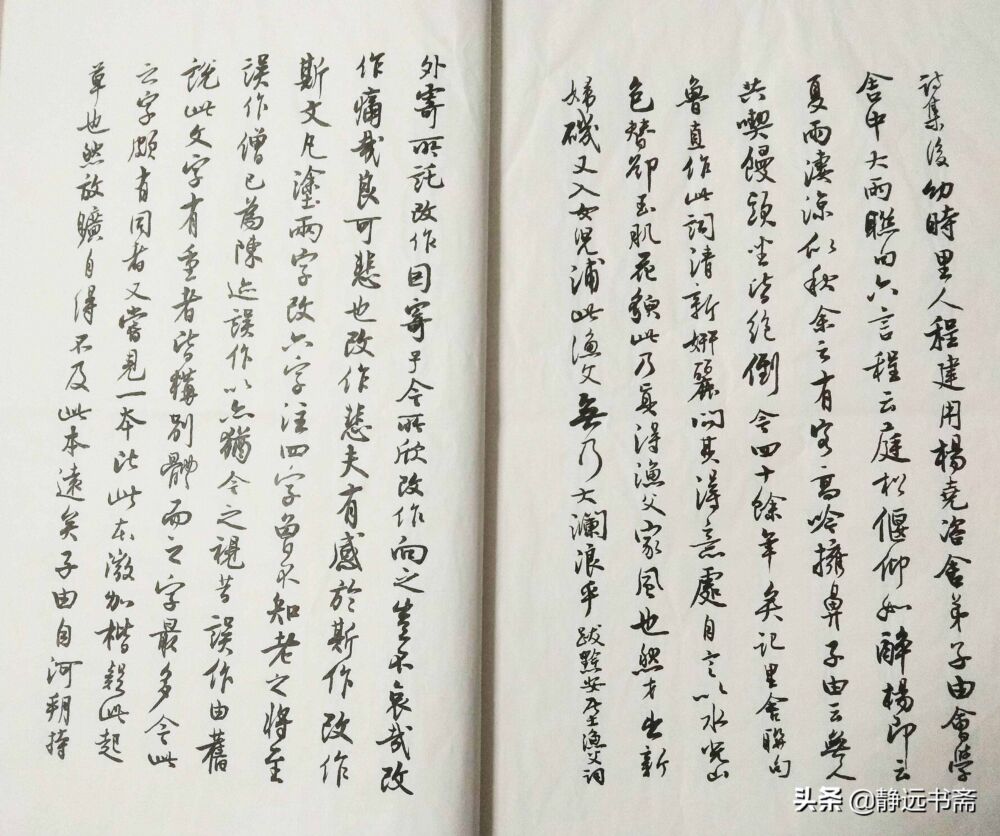 詩集後 幼時里人程建用楊堯咨舍弟子由會學
舍中大雨聯句六言程云庭松偃仰如醉楊即云
夏雨淒涼似秋余云有客高吟擁鼻子由云無人
共喫饅頭坐皆絕倒今四十餘年矣記里舍聯句
魯直作此詞清新妍麗問其得意處自言以水光山
色替却玉肌花貌此乃真得漁父家風也然才出新
婦磯又入女兒浦此漁父無乃大瀾浪乎 跋黔安居士漁父詞
外寄所託改作因寄於今所欣改作向之豈不哀哉改
作痛哉良可悲也改作悲夫有感於斯作改作
斯文凡塗兩字改六字注四字曾不知老之將至
誤作僧已為陳迹誤作以亦猶今之視昔誤作由舊
說此文字有重者皆構別體而之字最多今此
之字頗有同者又嘗見一本比此本微加楷疑此起
草也然放曠自得不及此本遠矣子由自河朔持
头条 @静远书斋